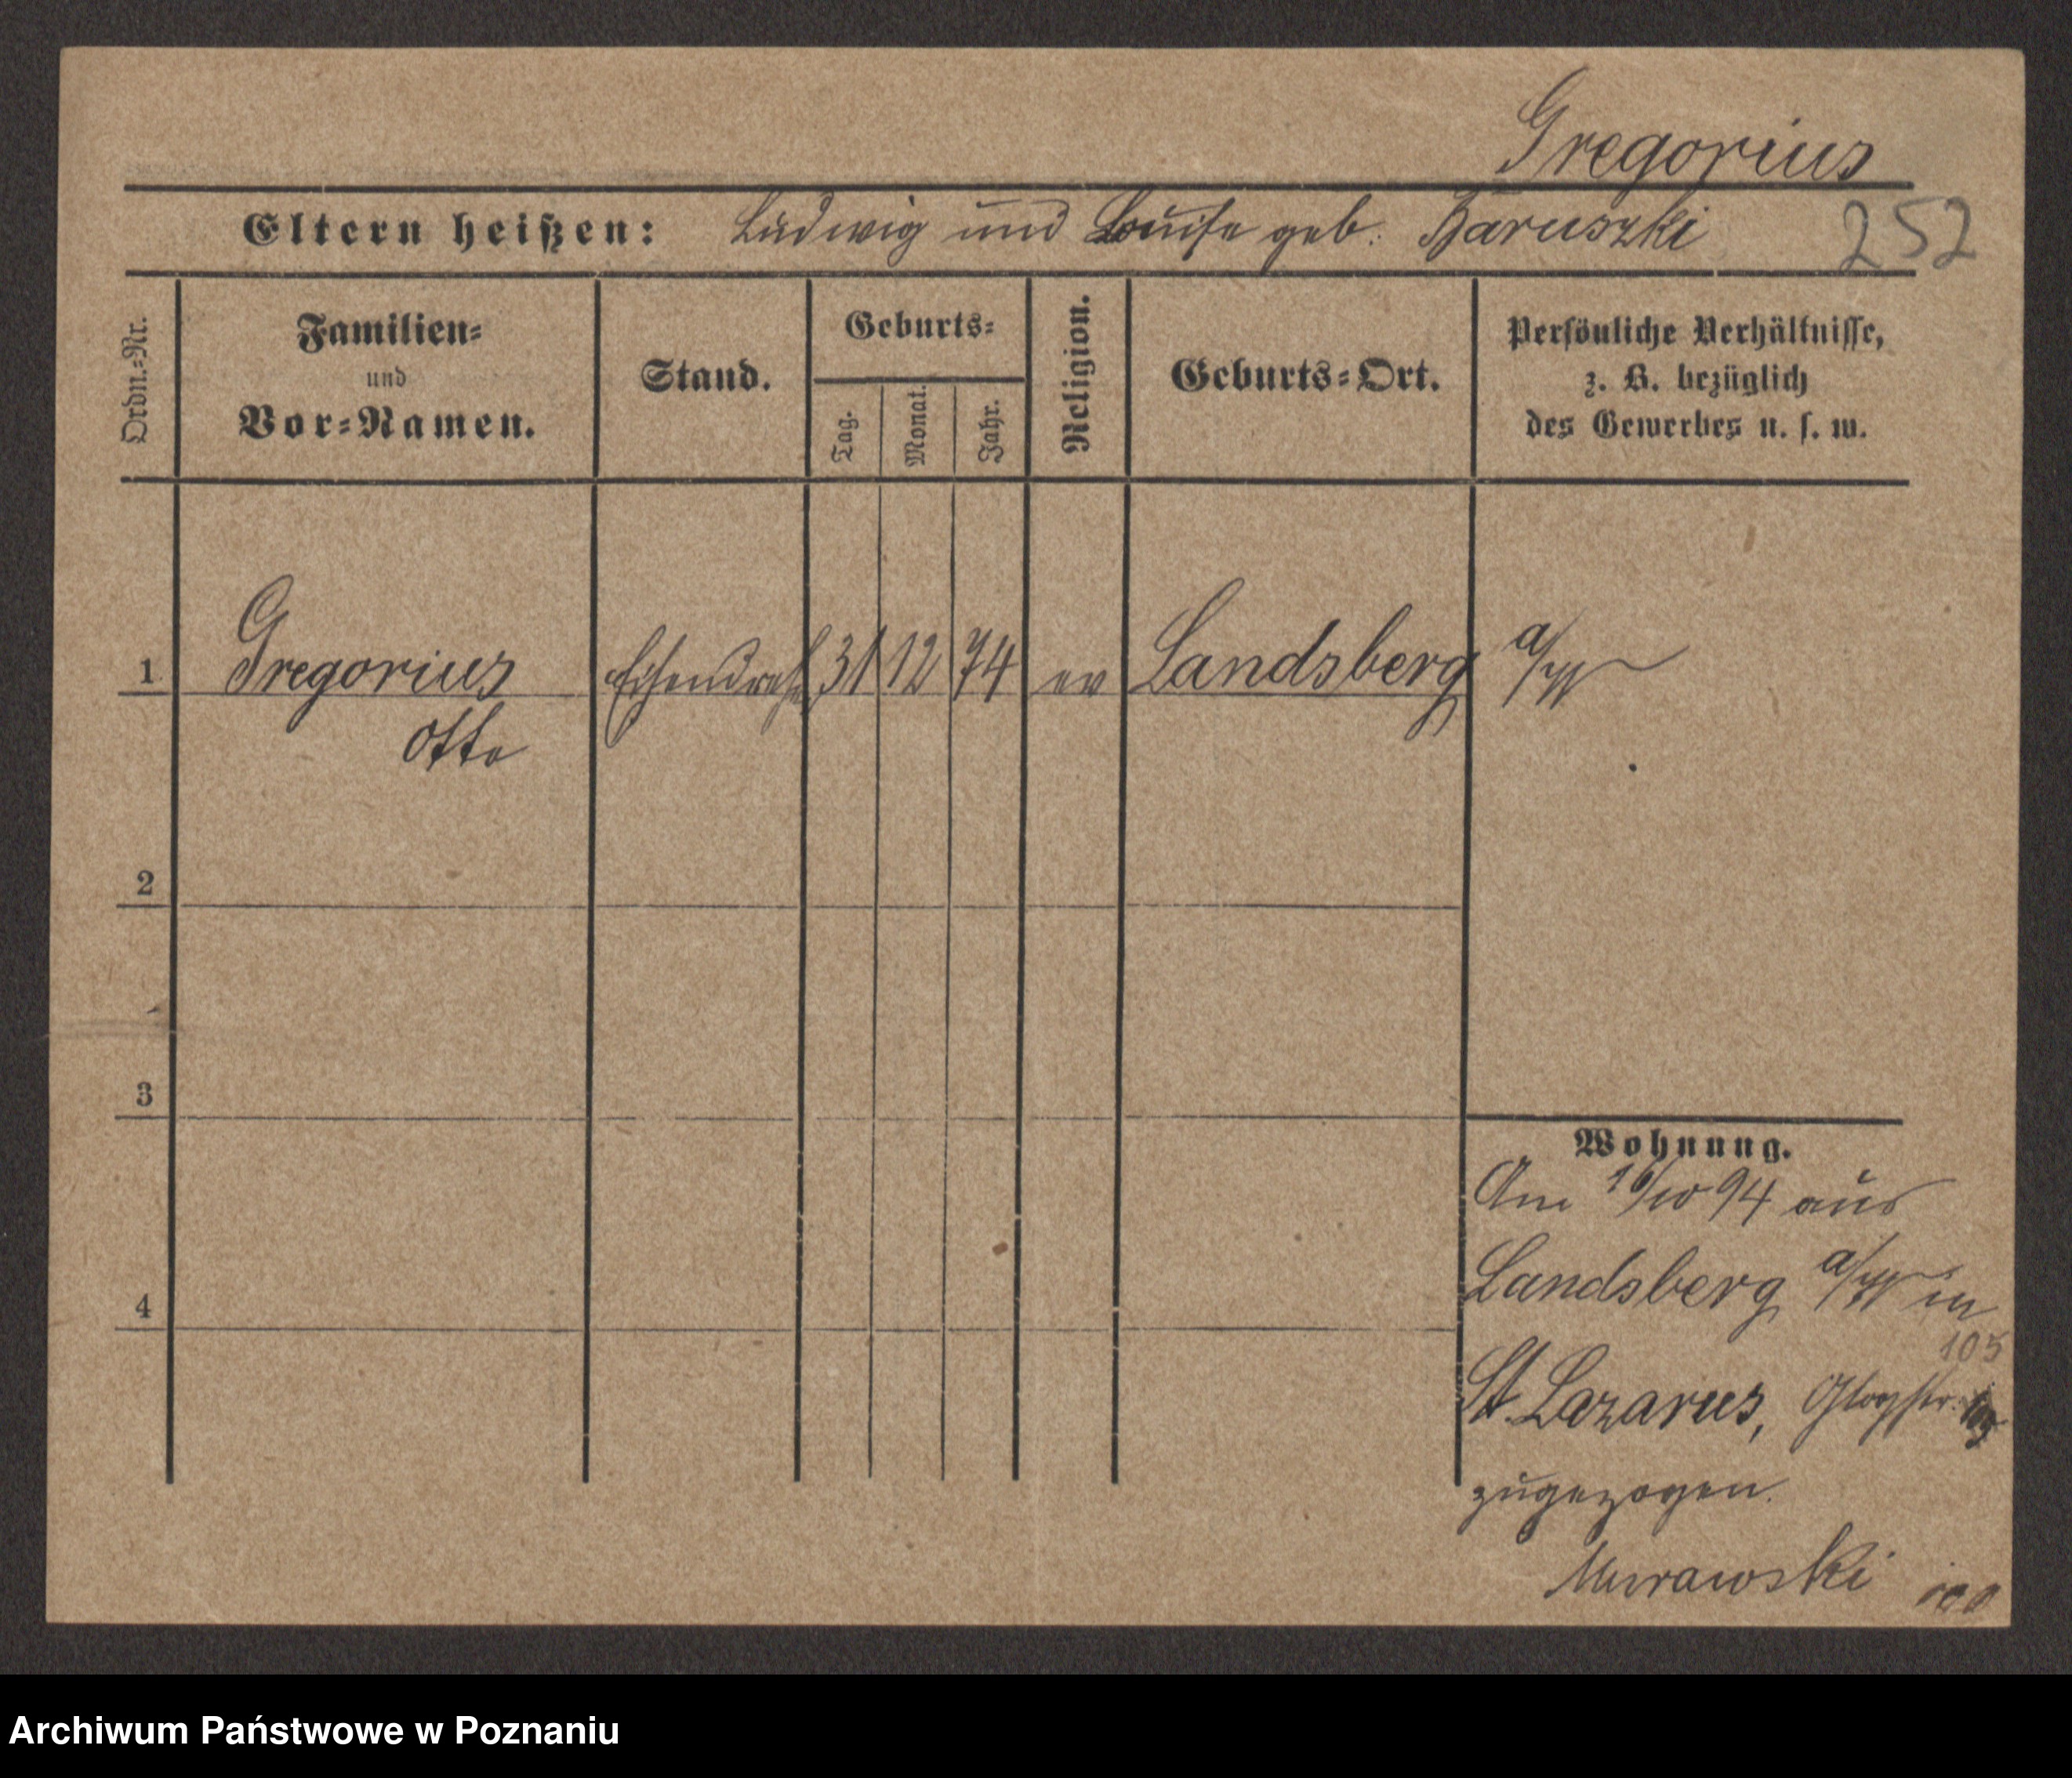 Gregorius
Eltern heißen: Ludwig und Louise geb. Baruszki 252
Ordn.=Nr.
Familien=
und
Vor=Namen.
Stand.
Geburts=
Tag.
Monat.
Jahr.
Religion.
Geburts=Ort.
Persönliche Verhältnisse,
z. B. bezüglich
des Gewerbes u. s. w.
1 Gregorius Eisendreher 31 12 74 ev Landsberg a/W
Otto
2
3
4
Wohnung.
Am 16/10 94 aus
Landsberg a/W in
105
St. Lazarus, Glogstr.
zugezogen.
Murawski
Archiwum Państwowe w Poznaniu